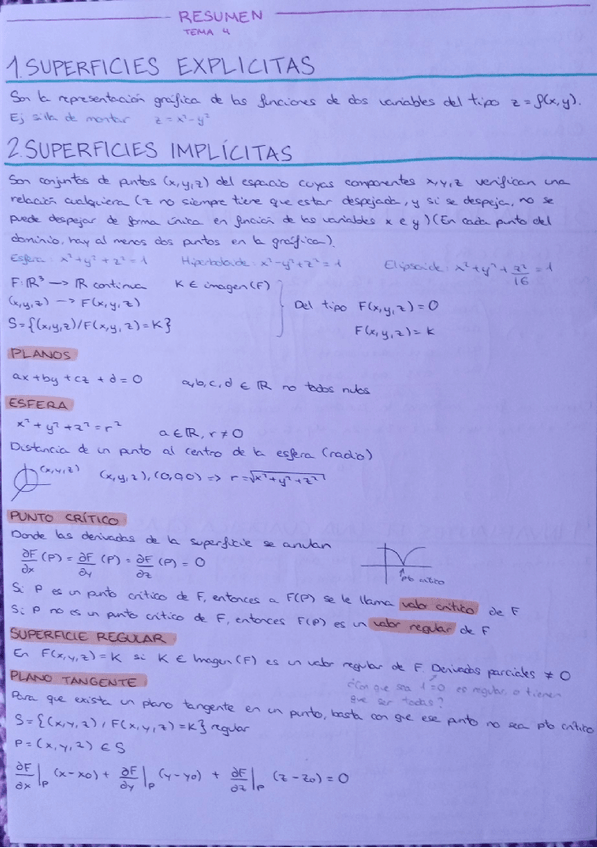 RESUMEN
TEMA 4
1. SUPERFICIES EXPLÍCITAS
Son la representación gráfica de las funciones de dos variables del tipo z = f(x,y).
Ej silla de montar z = x² - y²
2. SUPERFICIES IMPLÍCITAS
Son conjuntos de puntos (x,y,z) del espacio cuyas componentes x,y,z verifican una
relación cualquiera (z no siempre tiene que estar despejada, y si se despeja, no se
puede despejar de forma única en función de las variables x e y) (En cada punto del
dominio, hay al menos dos puntos en la gráfica).
Esfera: x² + y² + z² = 1 Hiperboloide: x² - y² + z² = 1 Elipsoide: x² + y² + z²/16 = 1
F: ℝ³ → ℝ continua K ∈ imagen (F)
(x,y,z) → F(x,y,z) Del tipo F(x,y,z) = 0
S = {(x,y,z) / F(x,y,z) = K} F(x,y,z) = K
PLANOS
ax + by + cz + d = 0 a,b,c,d ∈ ℝ no todos nulos
ESFERA
x² + y² + z² = r² a ∈ ℝ, r ≠ 0
Distancia de un punto al centro de la esfera (radio)
(x,y,z) (x,y,z), (0,0,0) => r = √x² + y² + z²
PUNTO CRÍTICO
Donde las derivadas de la superficie se anulan
∂F/∂x (P) = ∂F/∂y (P) = ∂F/∂z (P) = 0
pto crítico
Si P es un punto crítico de F, entonces a F(P) se le llama valor crítico de F
Si P no es un punto crítico de F, entonces F(P) es un valor regular de F
SUPERFICIE REGULAR
En F(x,y,z) = K si K ∈ Imagen (F) es un valor regular de F Derivadas parciales ≠ 0
¿Con que sea 1 = 0 es regular o tienen
que ser todas?
PLANO TANGENTE
Para que exista un plano tangente en un punto, basta con que ese punto no sea pto crítico
S = {(x,y,z) / F(x,y,z) = K} regular
P = (x,y,z) ∈ S
∂F/∂x |P (x - x0) + ∂F/∂y |P (y - y0) + ∂F/∂z |P (z - z0) = 0